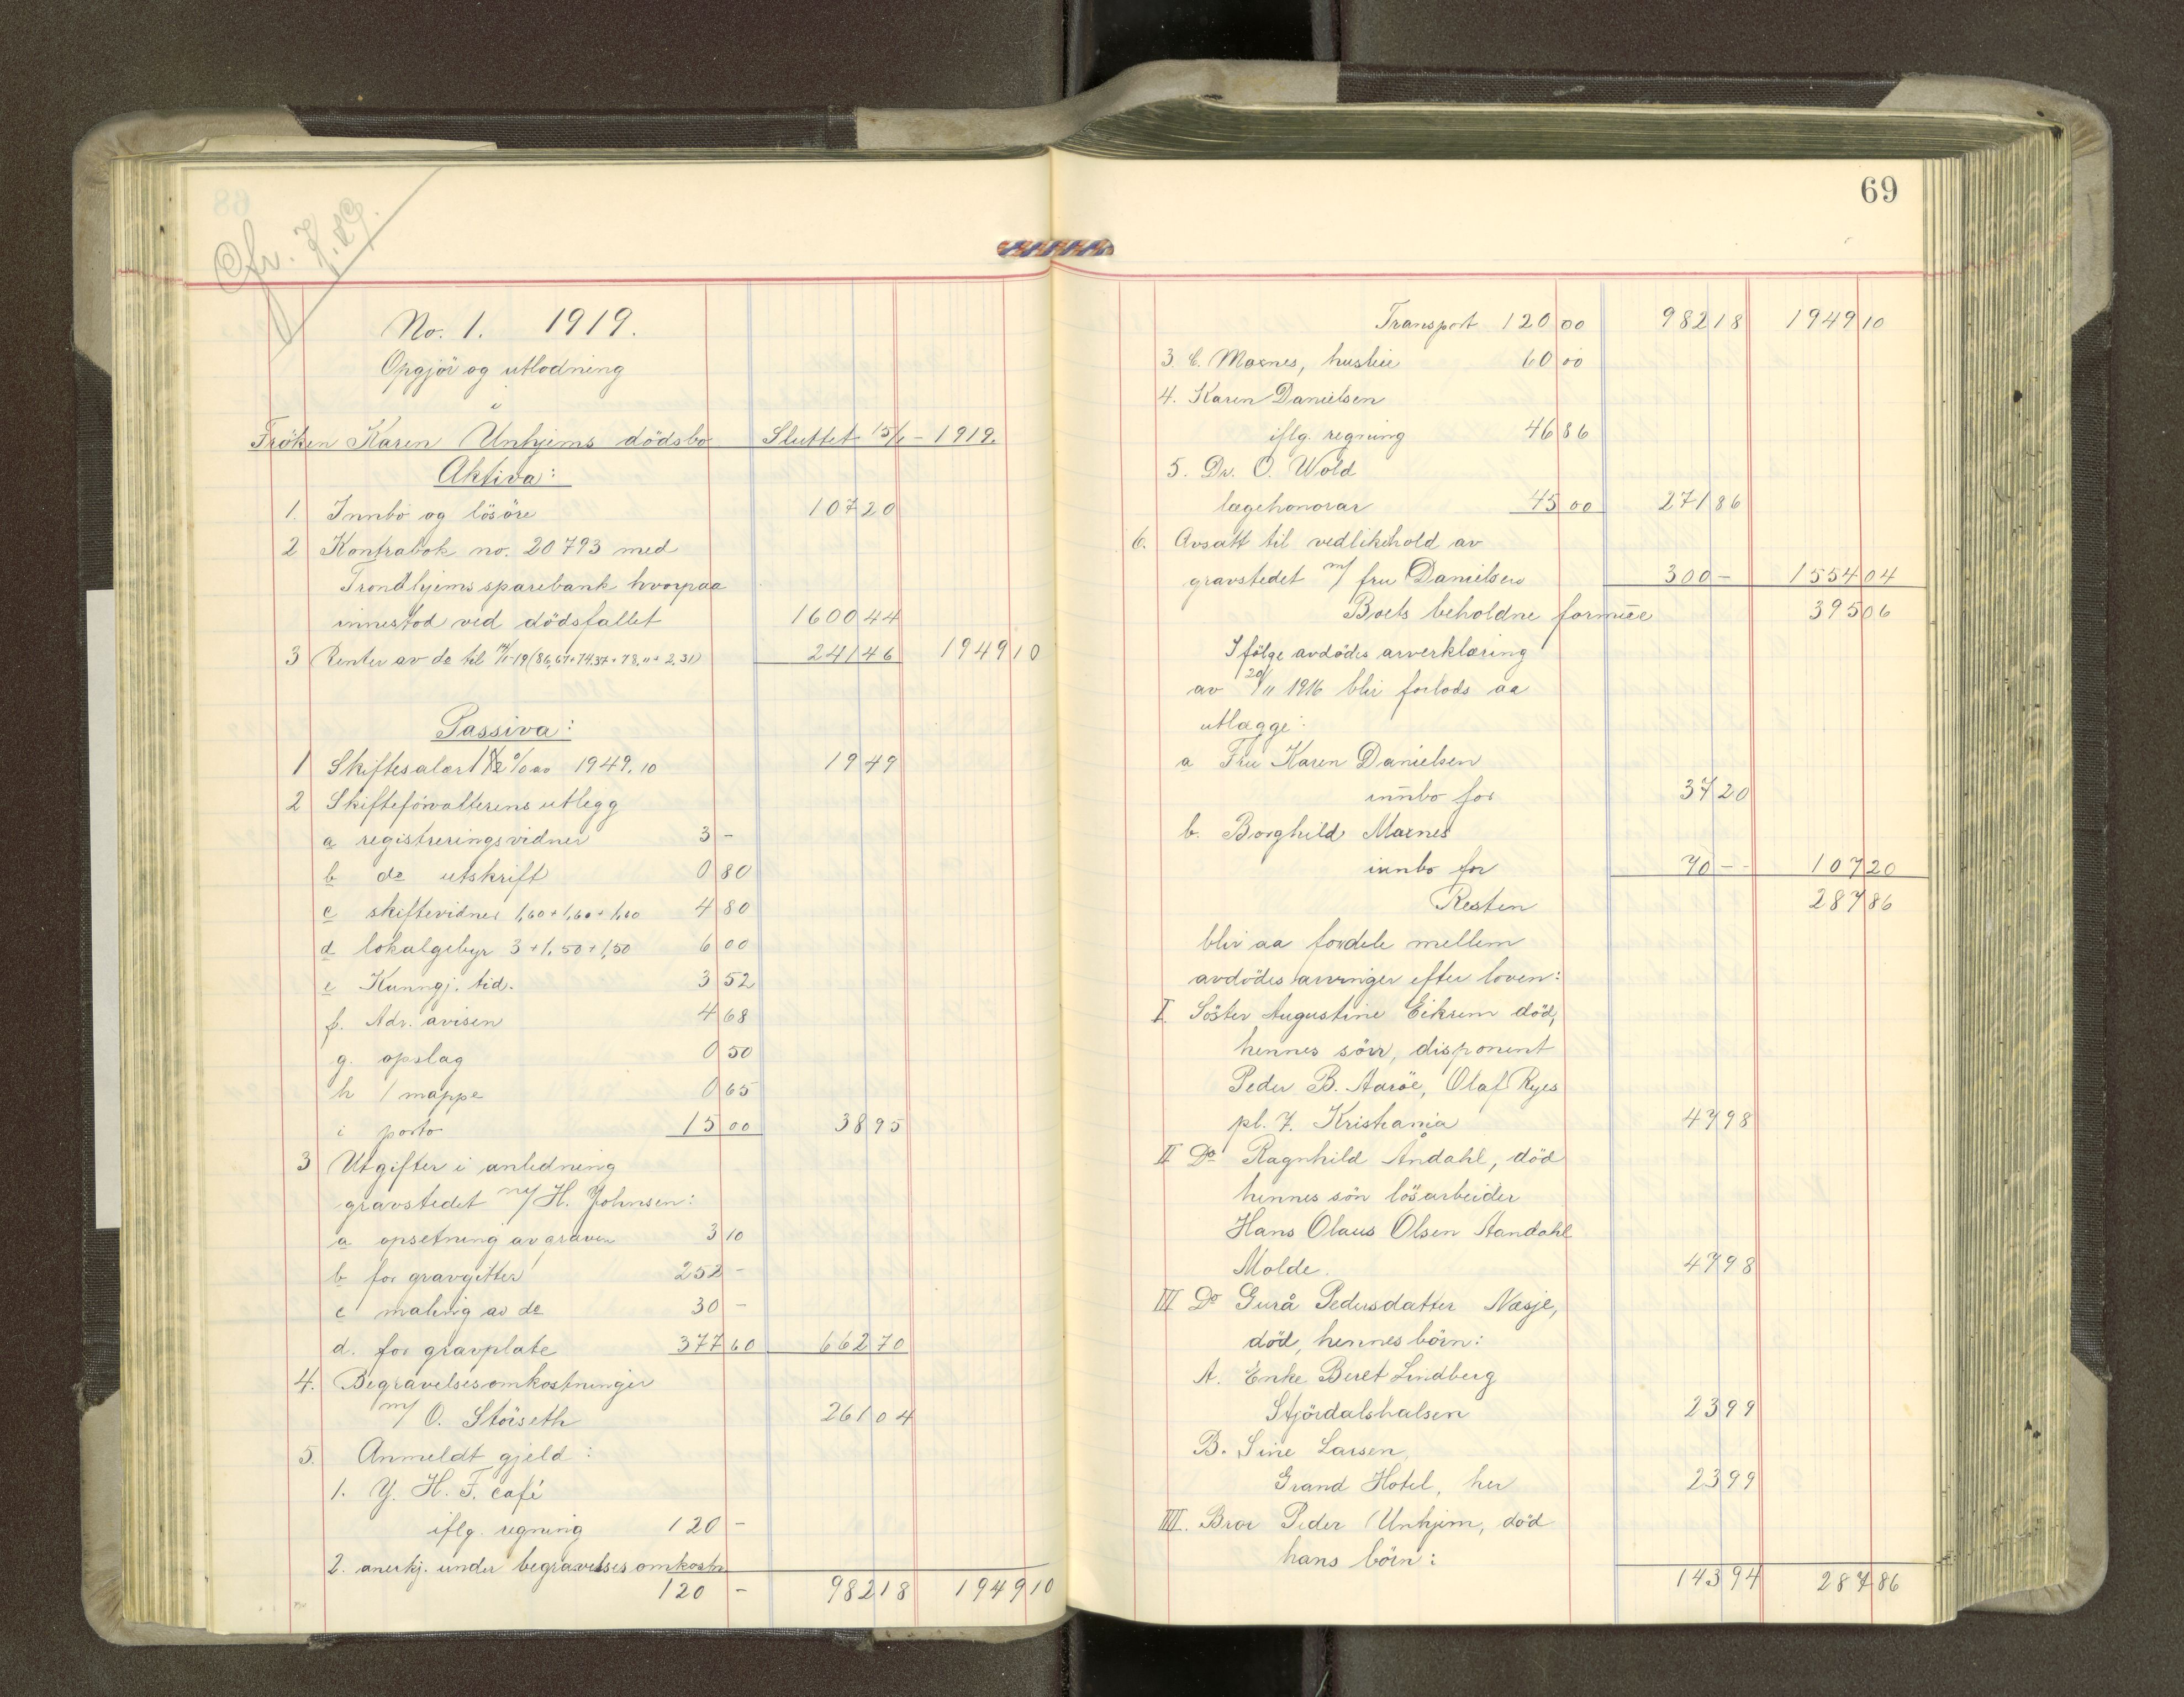 Cfr. J. 49.
No. 1. 1919.
Opgjör og utlodning
i
Fröken Karen Unhjems dödsbo Sluttet 15/1 - 1919.
Aktiva:
1. Innbo og lösöre 107 20
2 Kontrabok no. 20793 med
Trondhjems sparebank hvorpaa
innestod ved dödsfallet 1600 44
3 Renter av do til 1/1-19 (86,67+74,37+78,11+2,31) 241 46 1949 10
Passiva:
1 Skiftesalær 1 % av 1949.10 19 49
2 Skifteforvalterens utlegg
a registreringsvidner 3 -
b do utskrift 0 80
c skiftevidner 1,60+1,60+1,60 4 80
d lokalgebyr 3+1,50+1,50 6 00
e Kunngj. tid. 3 52
f. Adr. avisen 4 68
g. opslag 0 50
h 1 mappe 0 65
i porto 15 00 38 95
3 Utgifter i anledning
gravstedet v/ H. Johnsen:
a opsetning av graven 3 10
b for gravgitter 252 -
c maling av do 30 -
d. for gravplate 377 60 662 70
4. Begravelsesomkostninger
v/ O. Störseth 261 04
5. Anmeldt gjeld:
1. Y. H. F. café
iflg. regning 120 -
2. anerkj. under begravelsesomkostn
120 - 982 18 1949 10
69
Transport 120 00 982 18 1949 10
3. C. Marnes, husleie 60 00
4. Karen Danielsen
iflg. regning 46 86
5. Dr. O. Wold
lægehonorar 45 00 271 86
6. Avsatt til vedlikehold av
gravstedet v/ fru Danielsen 300 - 1554 04
Boets beholdne formue 395 06
Ifölge avdödes arverklæring
av 20/11 1916 blir forlods aa
utlægge:
a Fru Karen Danielsen
innbo for 37 20
b. Borghild Marnes
innbo for 70 - 107 20
Resten 287 86
blir aa fordele mellem
avdödes arvinger efter loven:
I. Söster Augustine Eikrem död,
hennes sönn, disponent
Peder B. Aaröe, Olaf Ryes
pl. 7. Kristiania 47 98
II Do Ragnhild Åndahl, död
hennes sön lösarbeider
Hans Olaus Olsen Aandahl
Molde. 47 98
III Do Gurå Pedersdatter Næsje,
död, hennes börn:
A. Enke Beret Lindberg
Stjördalshalsen 23 99
B. Sine Larsen,
Grand Hotel, her 23 99
IIII. Bror Peder Unhjem, död
hans börn:
143 94 287 86